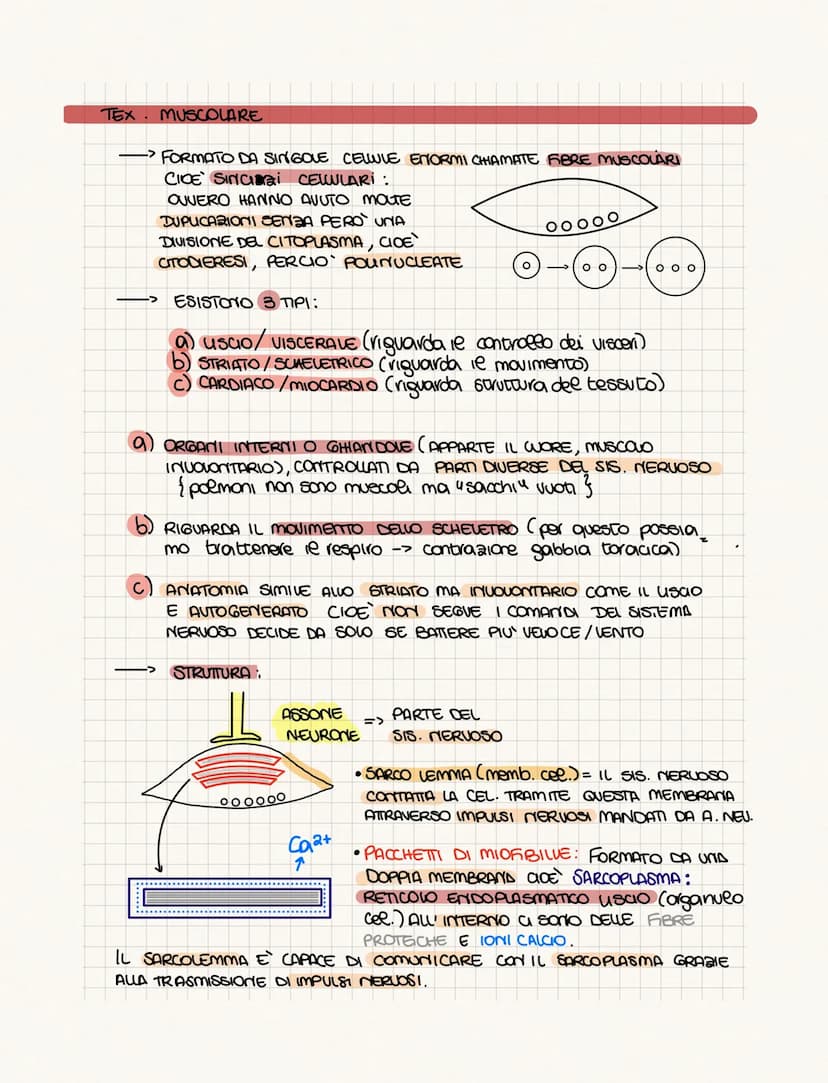 TEX. MUSCOLARE
→ FORMATO DA SINGOLE CELLULE ENORMI CHIAMATE FIBRE MUSCOLARI
CIOE' SINCIZI CELLULARI:
OVVERO HANNO AVUTO MOLTE
DUPLICAZIONI SENZA PERO' UNA
DIVISIONE DEL CITOPLASMA, CIOE'
CITODIERESI, PERCIO' POLINUCLEATE
→ ESISTONO 3 TIPI:
a) LISCIO/ VISCERALE (riguarda le controllo dei visceri)
b) STRIATO/SCHELETRICO (riguarda le movimento)
c) CARDIACO/MIOCARDIO (riguarda struttura del tessuto)
a) ORGANI INTERNI O GHIANDOLE (APPARTE IL CUORE, MUSCOLO
INVOLONTARIO), CONTROLLATI DA PARTI DIVERSE DEL SIS. NERVOSO
{polmoni non sono muscoli ma "sacchi" vuoti}
b) RIGUARDA IL MOVIMENTO DELLO SCHELETRO (per questo possia=
mo trattenere le respiro -> contrazione gabbia toracica)
c) ANATOMIA SIMILE ALLO STRIATO MA INVOLONTARIO COME IL LISCIO
E AUTOGENERATO CIOE' NON SEGUE I COMANDI DEL SISTEMA
NERVOSO DECIDE DA SOLO SE BATTERE PIU' VELOCE/LENTO
→ STRUTTURA:
ASSONE => PARTE DEL
NEURONE SIS. NERVOSO
• SARCO LEMMA (memb. cel.) = IL SIS. NERVOSO
CONTATTA LA CEL. TRAMITE QUESTA MEMBRANA
ATTRAVERSO IMPULSI NERVOSI MANDATI DA A. NEU.
Ca2+
• PACCHETTI DI MIOFIBILLE: FORMATO DA UNA
DOPPIA MEMBRANA CIOE' SARCOPLASMA:
RETICOLO ENDOPLASMATICO LISCIO (organulo
cel.) ALL'INTERNO CI SONO DELLE FIBRE
PROTEICHE E IONI CALCIO.
IL SARCOLEMMA E' CAPACE DI COMUNICARE CON IL SARCOPLASMA GRAZIE
ALLA TRASMISSIONE DI IMPULSI NERVOSI.